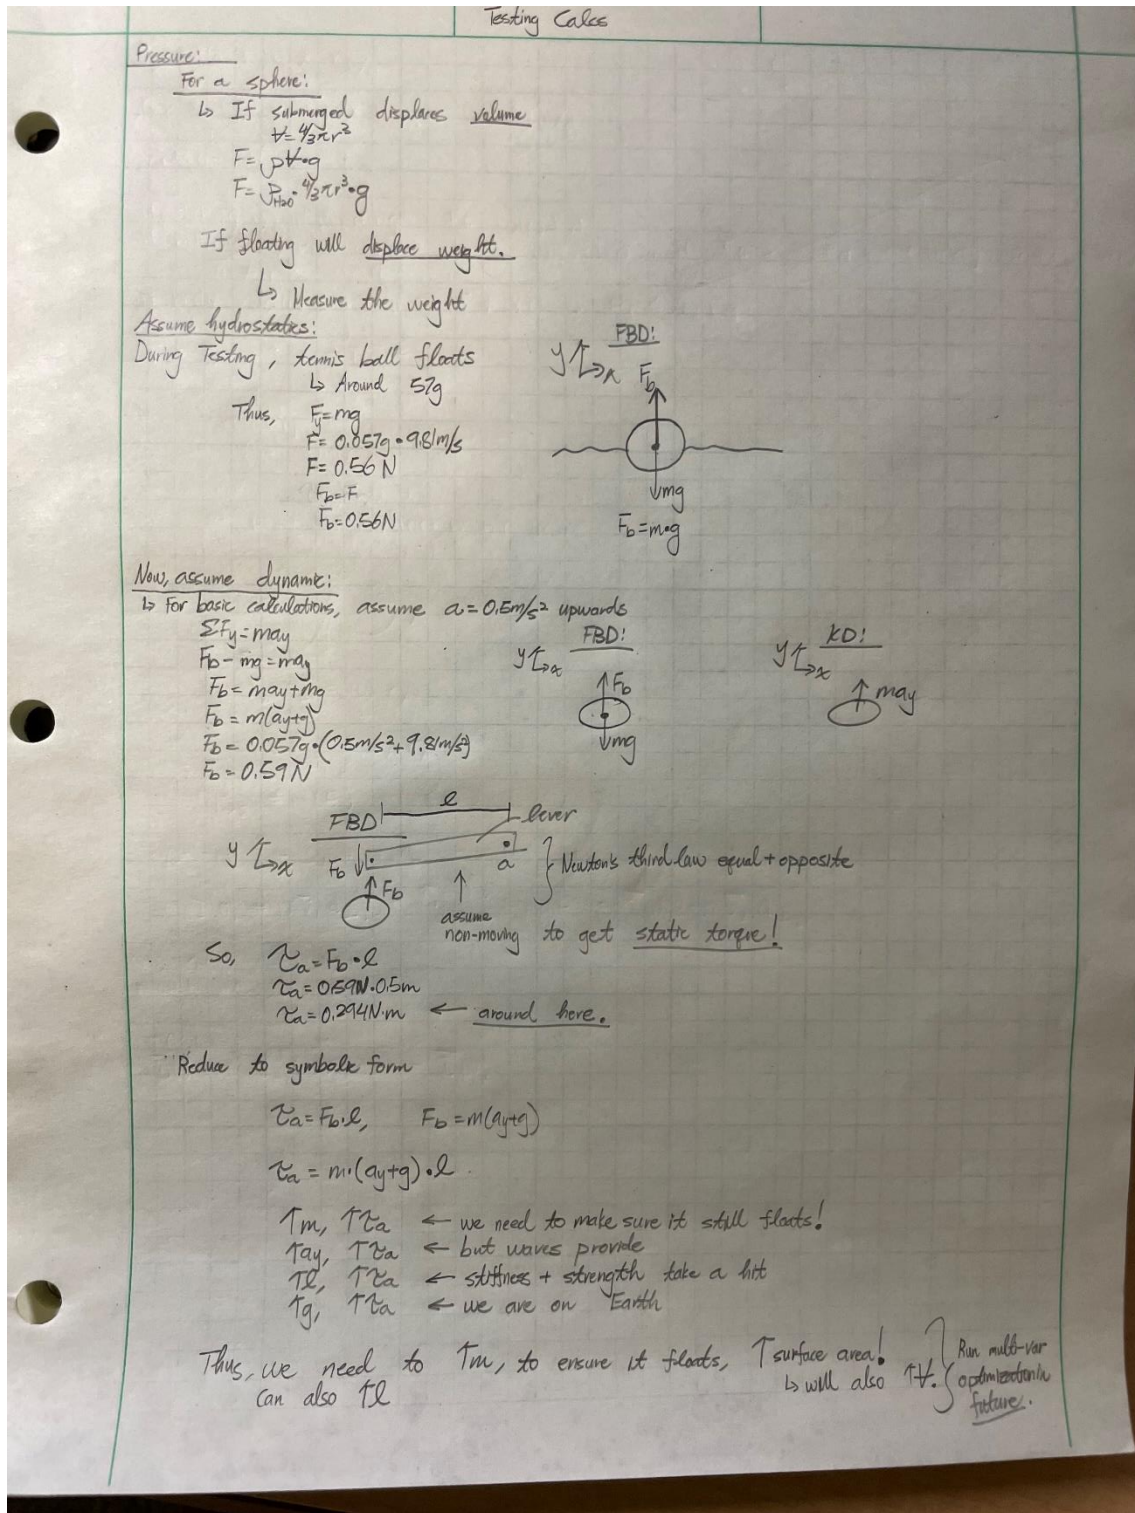 Testing Calcs
Pressure:
For a sphere:
↳ If submerged displaces volume
V=4/3πr³
F=ρV•g
F=ρH2O•4/3πr³•g
If floating will displace weight.
↳ Measure the weight
Assume hydrostatics:
During Testing, tennis ball floats
↳ Around 57g
Thus, Fy=mg
F=0.057g•9.81m/s
F=0.56N
Fb=F
Fb=0.56N
FBD:
y
x
Fb
mg
Fb=m•g
Now, assume dynamic:
↳ For basic calculations, assume a=0.5m/s² upwards
ΣFy=may
Fb-mg=may
Fb=may+mg
Fb=m(ay+g)
Fb=0.057g•(0.5m/s²+9.81m/s²)
Fb=0.59N
FBD:
y
x
Fb
mg
KD:
y
x
may
FBD
l
lever
y
x
Fb
Fb
a
} Newton's third law equal+opposite
assume
non-moving to get static torque!
So, τa=Fb•l
τa=0.59N•0.5m
τa=0.294N•m ← around here.
Reduce to symbolic form
τa=Fb•l, Fb=m(ay+g)
τa=m•(ay+g)•l
↑m, ↑τa ← we need to make sure it still floats!
↑ay, ↑τa ← but waves provide
↑l, ↑τa ← stiffness + strength take a hit
↑g, ↑τa ← we are on Earth
Thus, we need to ↑m, to ensure it floats, ↑surface area!
can also ↑l
↳ will also ↑V.
} Run multi-var
optimization in
future.